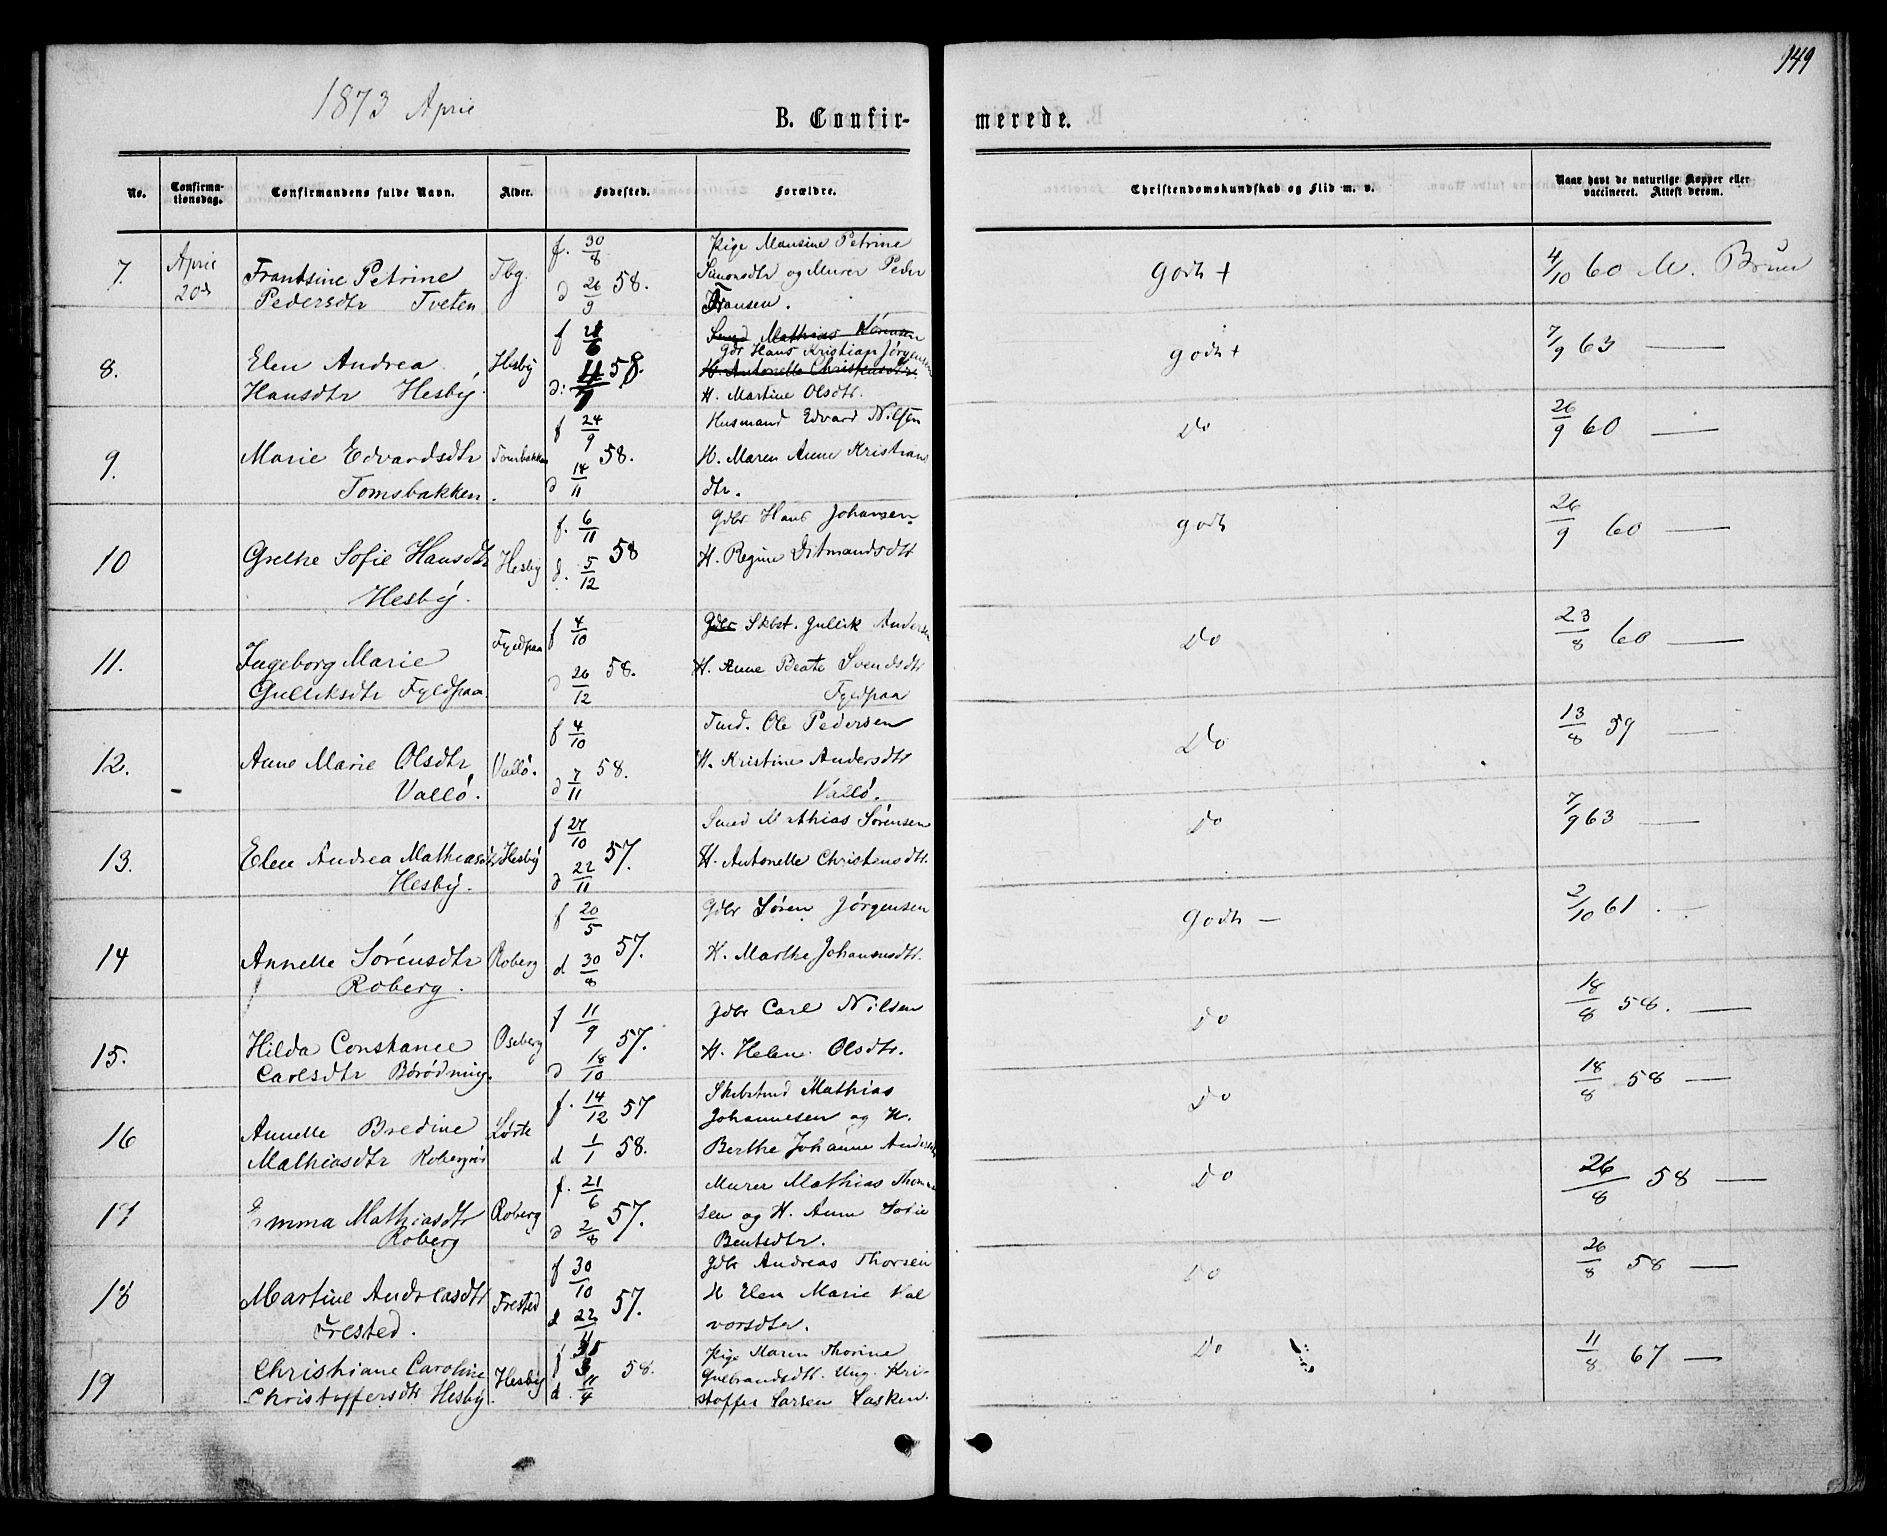 149
1873 April
B. Confirmerede.
No. Confirmationsdag. Confirmandens fulde Navn. Alder. Fødested. Forældre. Christendomskundskab og Flid m. v. Naar havt de naturlige Kopper eller vaccineret. Attest derom.
7. April 20de Frantsine Petrine Pedersdtr Tveten Tbg. f. 30/8 d 26/9 58. Pige Mansine Petrine Simonsdtr og Murer Peder Fransen. Godt + 4/10 60 M. Bruun
8. Elen Andrea Hansdtr Hesby. Hesby f 21/6 d: 11/7 58. Smed Mathias Sørensen Gdr Hans Kristian Jørgensen H. Antonette Christensdtr. H. Martine Olsdtr. godt + 7/9 63 —
9. Marie Edvardsdtr Tomsbakken. Tomsbakken f 24/9 d 14/11 58. Husmand Edvard Nilsen H. Maren Anne Kristiansdtr. Do 26/9 60 —
10 Grethe Sofie Hansdtr Hesby. Hesby f. 6/11 d. 5/12 58 Gdbr Hans Johansen. H. Regine Ditmandsdtr godt 26/9 60 —
11. Ingeborg Marie Gulliksdtr Fyldpaa. Fyldpaa f 4/10 d 26/12 58. Gdbr Skbst. Gullik Andersen H. Anne Beate Svendsdtr Fyldpaa Do 23/8 60 —
12. Anne Marie Olsdtr Vallø. Vallø. f 4/10 d 7/11 58. Tmd. Ole Pedersen H. Kristine Andersdtr Vallø. Do 13/8 59 —
13. Elen Andrea Mathiasdtr Hesby. Hesby f 27/10 d 22/11 57. Smed Mathias Sørensen H. Antonette Christensdtr. Do 7/9 63 —
14 Annette Sørensdtr Roberg. Roberg f 20/5 d 30/8 57. Gdbr Søren Jørgensen H. Marthe Johannesdtr. Godt — 2/10 61. —
15. Hilda Constance Carlsdtr Børødning. Oseberg f 11/9 d 18/10 57. Gdbr Carl Nilsen H. Helene Olsdtr. Do 18/8 58. —
16 Annette Bredine Mathiasdtr Robergrø Lørte f. 14/12 57 d 1/1 58. Skibstmd Mathias Johannesen og H. Berthe Johanne Andersdtr Do 18/8 58 —
17 Emma Mathiasdtr Roberg Roberg f. 21/6 d 2/8 57. Murer Mathias Thommesen og H. Anne Sofie Bentsdtr. Do 26/8 58 —
18 Martine Andreasdtr Frested. Frested f 30/10 d 22/11 57. Gdbr Andreas Thorsen H Elen Marie Halvorsdtr. Do 26/8 58 —
19 Christiane Caroline Christoffersdtr Hesby. Hesby f 3 d. 11/4 58. Pige Maren Thorine Gulbrandsdtr. Ung. Kristoffer Larsen Basken. Do 11/8 67 —